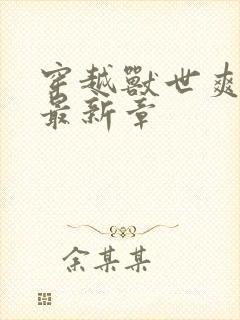 穿越兽世爽
最新章
余某某